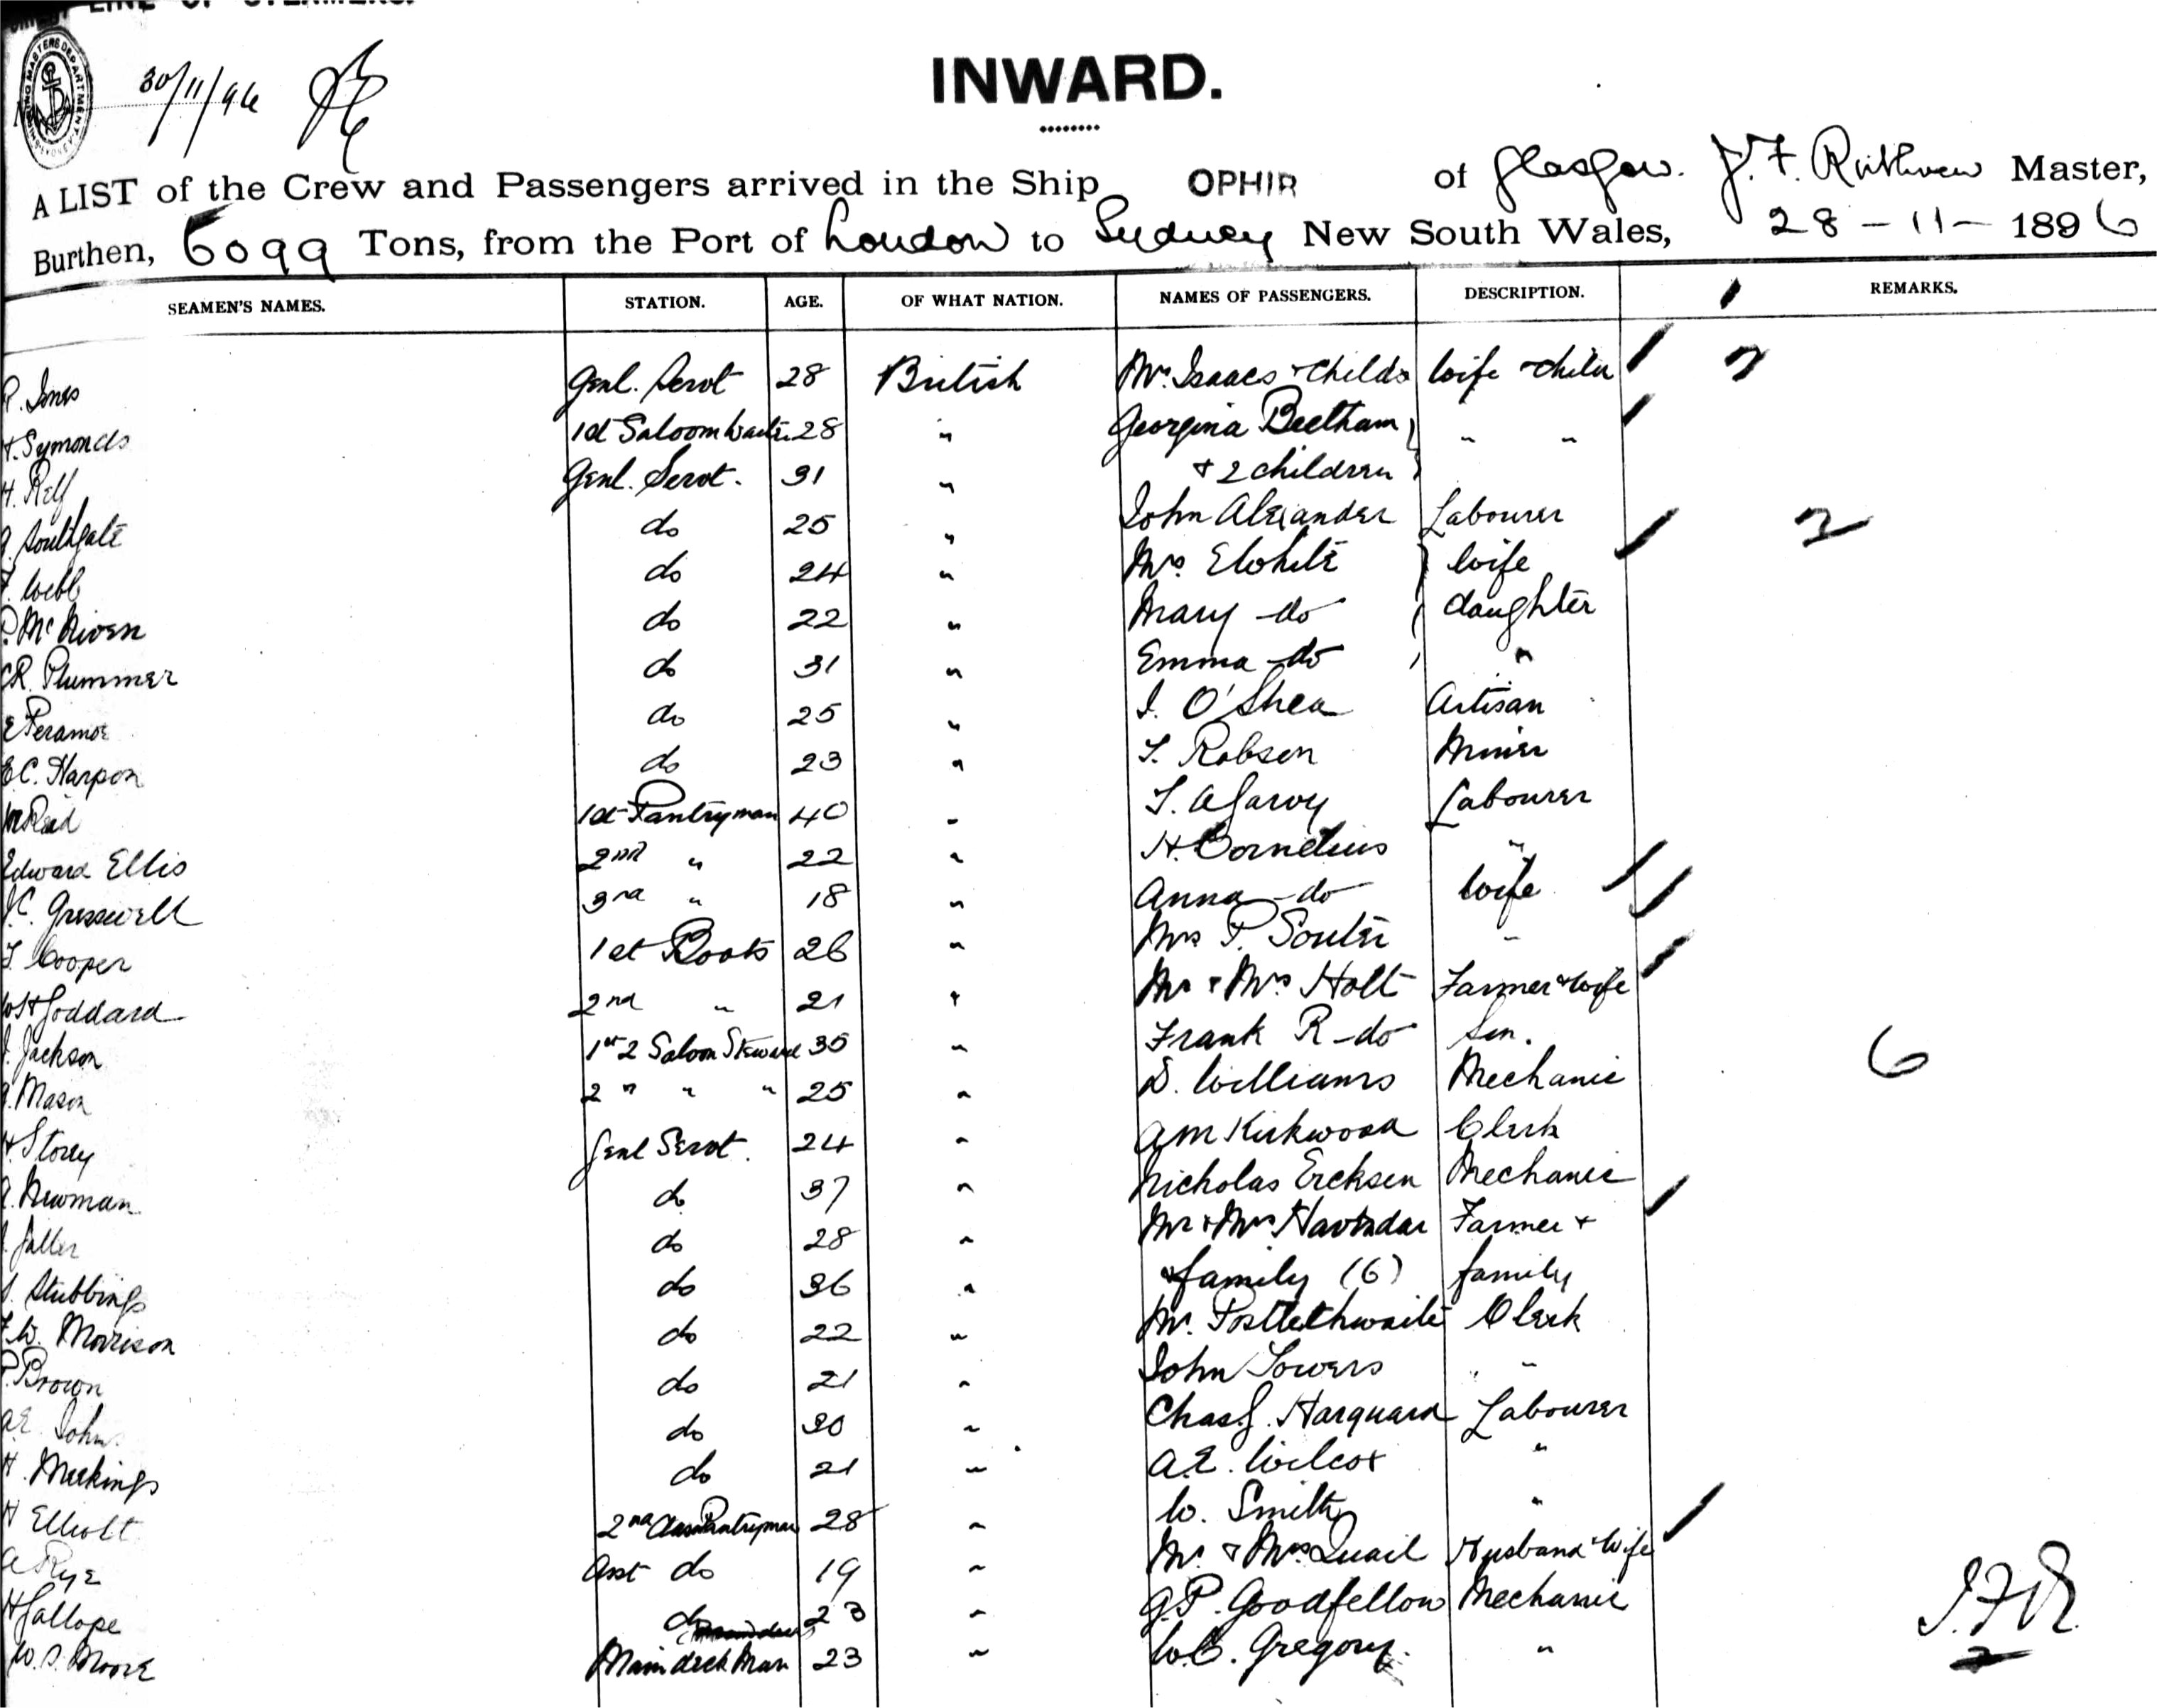 LINE OF STEAMERS.
30/11/96
INWARD.
A LIST of the Crew and Passengers arrived in the Ship OPHIR of Glasgow. J. F. Ruthven Master,
Burthen, 6099 Tons, from the Port of London to Sydney New South Wales, 28-11-1896
SEAMEN'S NAMES. STATION. AGE. OF WHAT NATION. NAMES OF PASSENGERS. DESCRIPTION. REMARKS.
Genl. Servt 28 British Mrs. Isaacs + Child wife + child
H. Symonds 1st Saloon Waiter 28 " Georgina Beetham " "
H. Relf Genl. Servt. 31 " + 2 children
Southgate do 25 " John Alexander Labourer 2
Webb do 24 " Mrs. White wife
McNiven do 22 " Mary do daughter
C.R. Plummer do 31 " Emma do "
E Peramor do 25 " J. O'Shea Artisan
E.C. Harpon do 23 " T. Robson Miner
Reid 1st Pantryman 40 " Labourer
Edward Ellis 2nd " 22 " H. Cornelius "
J.C. Gresswell 3rd " 18 " Anna do wife
Cooper 1st Boots 26 " Mrs P. Souter "
W H Goddard 2nd " 21 " Mr + Mrs Holt Farmer + wife
J. Jackson 1st 2 Saloon Steward 35 " Frank R do Son.
Mason 2 " " " 25 " D. Williams Mechanic 6
H. Storey Genl Servt. 24 " A M Kirkwood Clerk
Newman do 37 " Nicholas Ercksen Mechanic
do 28 " Mr + Mrs Farmer +
Stubbings do 36 " + family (6) family
F.W. Morrison do 22 " Mr. Postlethwaite Clerk
P. Brown do 21 " John Towers "
A.E. John. do 30 " Chas. J. Harquard Labourer
H. Meekings do 21 " A.E. Wilcox "
H Elliott 2nd Class Pantryman 28 " W. Smith "
A Rye Asst do 19 " Mr. & Mrs. Quail Husband + Wife
H Gallope do 23 " G.P. Goodfellow Mechanic J.F.R.
W. S. Moore Main deck Man 23 " W.C. Gregory. "